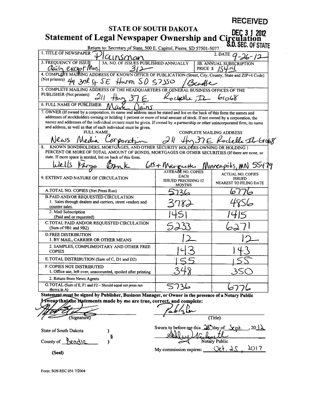 RECEIVED
DEC 31 2012
S.D. SEC. OF STATE
STATE OF SOUTH DAKOTA
Statement of Legal Newspaper Ownership and Circulation
Return to: Secretary of State, 500 E. Capitol, Pierre, SD 57501-5077
1. TITLE OF NEWSPAPER Plainsman
2. DATE 9-26-12
3. FREQUENCY OF ISSUE Daily except Mon
3A. NO. OF ISSUES PUBLISHED ANNUALLY 312
3B. ANNUAL SUBSCRIPTION PRICE $
4. COMPLETE MAILING ADDRESS OF KNOWN OFFICE OF PUBLICATION (Street, City, County, State and ZIP+4 Code)
(Not printers) SE Huron SD 57350 / Beadle
5. COMPLETE MAILING ADDRESS OF THE HEADQUARTERS OR GENERAL BUSINESS OFFICES OF THE
PUBLISHERS (Not printers) 211 Hwy 37 E Rochelle IL 61068
6. FULL NAME OF PUBLISHER: Mark Davis
7. OWNER (If owned by a corporation, its name and address must be stated and list on the back of this form the names and
addresses of stockholders owning or holding 1 percent or more of total amount of stock. If not owned by a corporation, the
names and addresses of the individual owners must be given. If owned by a partnership or other unincorporated firm, its name
and address, as well as that of each individual must be given.
FULL NAME COMPLETE MAILING ADDRESS
News Media Corporation 211 Hwy 37 E Rochelle IL 61068
8. KNOWN BONDHOLDERS, MORTGAGEES, AND OTHER SECURITY HOLDERS OWNING OR HOLDING 1
PERCENT OR MORE OF TOTAL AMOUNT OF BONDS, MORTGAGES OR OTHER SECURITIES (If there are none, so
state. If more space is needed, list on back of this form.
Wells Fargo Bank 6th + Marquette Minneapolis, MN 55479
9. EXTENT AND NATURE OF CIRCULATION
AVERAGE NO. COPIES EACH ISSUED PRECEDING 12 MONTHS
ACTUAL NO. COPIES ISSUED NEAREST TO FILING DATE
A. TOTAL NO. COPIES (Net Press Run) 5736 6776
B. PAID AND/OR REQUESTED CIRCULATION
1. Sales through dealers and carriers, street vendors and
counter sales. 3782 4856
2. Mail Subscription
(Paid and or requested) 1451 1415
C. TOTAL PAID AND/OR REQUESTED CIRCULATION
(Sum of 9B1 and 9B2) 5233 6271
D. FREE DISTRIBUTION
1. BY MAIL, CARRIER OR OTHER MEANS 12 12
2. SAMPLES, COMPLIMENTARY AND OTHER FREE
COPIES 143 143
E. TOTAL DISTRIBUTION (Sum of C, D1 and D2) 155 155
F. COPIES NOT DISTRIBUTED
1. Office use, left over, unaccounted, spoiled after printing 348 350
2. Return from News Agents
G. TOTAL (Sum of E, F1 and F2 - Should equal net press run
shown in A) 5736 6776
Statement must be signed by Publisher, Business Manager, or Owner in the presence of a Notary Public
I swear that the statements made by me are true, correct, and complete:
Publisher
(Signature) (Title)
State of South Dakota )
§
County of Beadle )
(Seal)
Sworn to before me this 28th day of Sept, 2012
Notary Public
My commission expires: Oct. 25, 2017
Form: SOS REC 051 7/2004